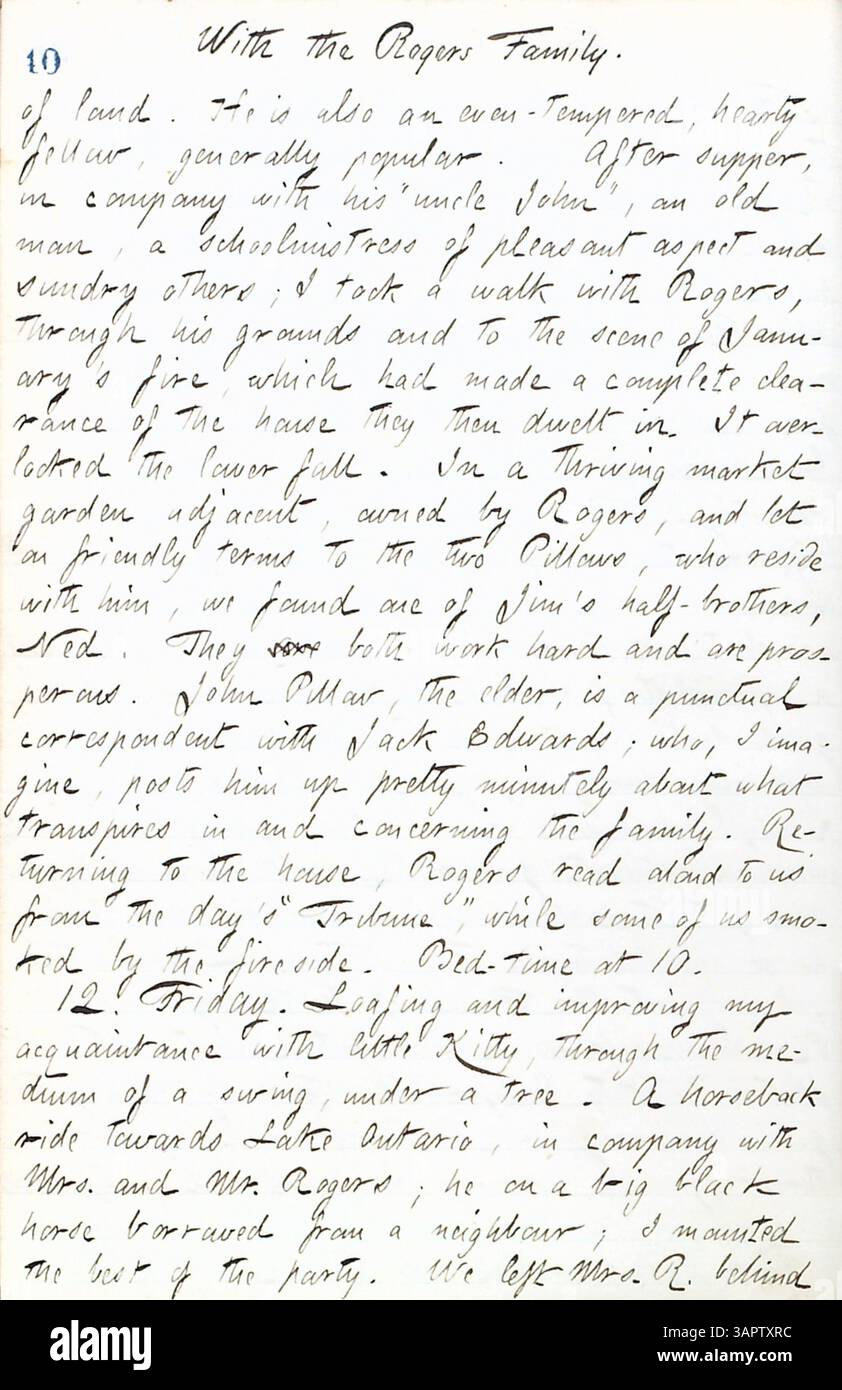 10
With the Rogers Family.
of land. He is also an even-tempered, hearty
fellow, generally popular. After supper,
in company with his "uncle John", an old
man, a schoolmistress of pleasant aspect and
sundry others; I took a walk with Rogers,
through his grounds and to the scene of Janu-
ary's fire, which had made a complete clea-
rance of the house they then dwelt in. It over-
looked the lower fall. In a thriving market
garden adjacent, owned by Rogers, and let
on friendly terms to the two Pillows, who reside
with him, we found one of Jim's half-brothers,
Ned. They both work hard and are pros-
perous. John Pillow, the elder, is a punctual
correspondent with Jack Edwards; who, I ima-
gine, posts him up pretty minutely about what
transpires in and concerning the family. Re-
turning to the house, Rogers read aloud to us
from the day's "Tribune", while some of us smo-
ked by the fireside. Bed-time at 10.
12. Friday. Loafing and improving my
acquaintance with little Kitty, through the me-
dium of a swing, under a tree. A horseback
ride towards Lake Ontario, in company with
Mrs. and Mr. Rogers; he on a big black
horse borrowed from a neighbour; I mounted
the best of the party. We left Mrs. R. behind
alamy
Image ID: 3APTXRC
www.alamy.com